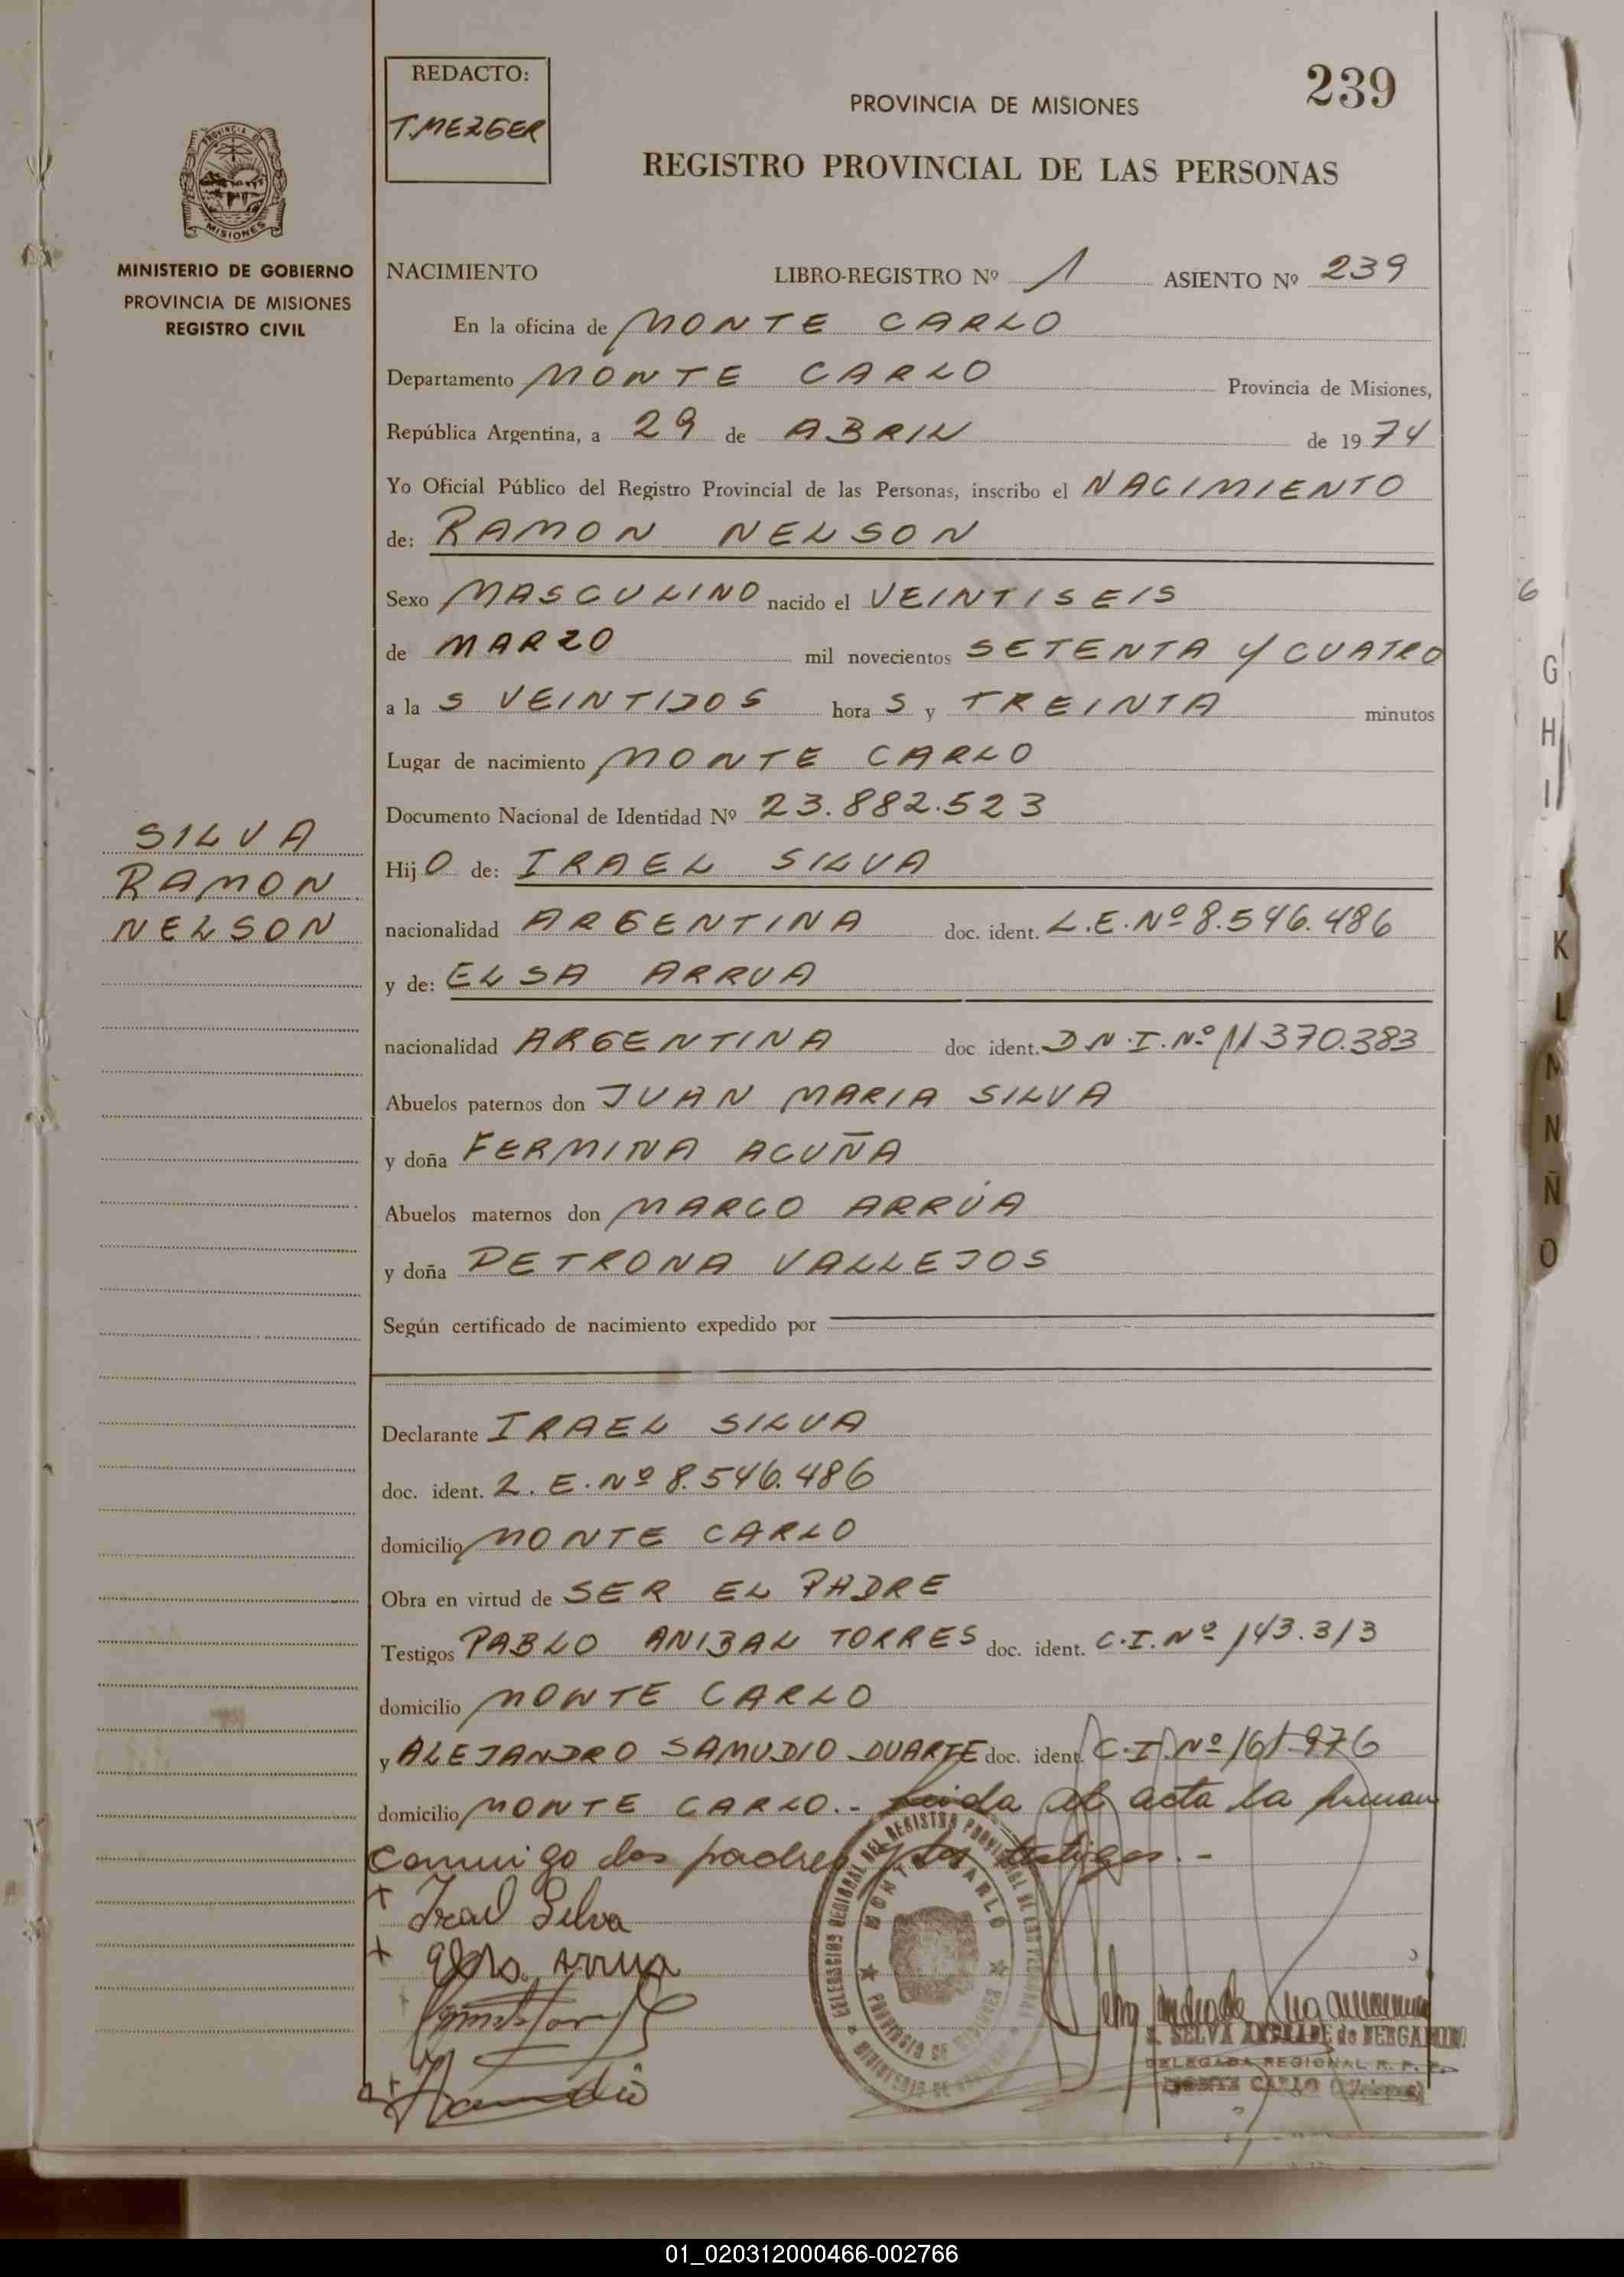 239
REDACTO:
T. MEZGER
PROVINCIA DE MISIONES
REGISTRO PROVINCIAL DE LAS PERSONAS
PROVINCIA DE
MISIONES
MINISTERIO DE GOBIERNO
PROVINCIA DE MISIONES
REGISTRO CIVIL
NACIMIENTO LIBRO-REGISTRO Nº 1 ASIENTO Nº 239
En la oficina de MONTE CARLO
Departamento MONTE CARLO Provincia de Misiones,
República Argentina, a 29 de ABRIL de 1974
Yo Oficial Público del Registro Provincial de las Personas, inscribo el NACIMIENTO
de: RAMON NELSON
Sexo MASCULINO nacido el VEINTISEIS
de MARZO mil novecientos SETENTA Y CUATRO
a la S VEINTIDOS hora S y TREINTA minutos
Lugar de nacimiento MONTE CARLO
Documento Nacional de Identidad Nº 23.882.523
SILVA
RAMON
NELSON
Hij O de: IRAEL SILVA
nacionalidad ARGENTINA doc. ident. L.E. Nº 8.546.486
y de: ELSA ARRUA
nacionalidad ARGENTINA doc ident. D N.I. Nº 11 370.383
Abuelos paternos don JUAN MARIA SILVA
y doña FERMINA ACUÑA
Abuelos maternos don MARCO ARRÚA
y doña PETRONA VALLEJOS
Según certificado de nacimiento expedido por
Declarante IRAEL SILVA
doc. ident. L.E. Nº 8.546.486
domicilio MONTE CARLO
Obra en virtud de SER EL PADRE
Testigos PABLO ANIBAL TORRES doc. ident. C.I. Nº 143.313
domicilio MONTE CARLO
y ALEJANDRO SAMUDIO DUARTE doc. ident. C.I. Nº 161.976
domicilio MONTE CARLO.- Leida el acta la firman
conmigo los padres y los testigos.-
Irael Silva
Elsa Arrua
DELEGACION REGIONAL DEL REGISTRO PROVINCIAL DE LAS PERSONAS
MONTE CARLO
PROVINCIA DE MISIONES
MINISTERIO DE GOBIERNO
SELVA ANDRADE de BERGAMINI
DELEGADA REGIONAL R. P. P.
MONTE CARLO (Misiones)
G
H
I
J
K
L
M
N
Ñ
O
01_020312000466-002766